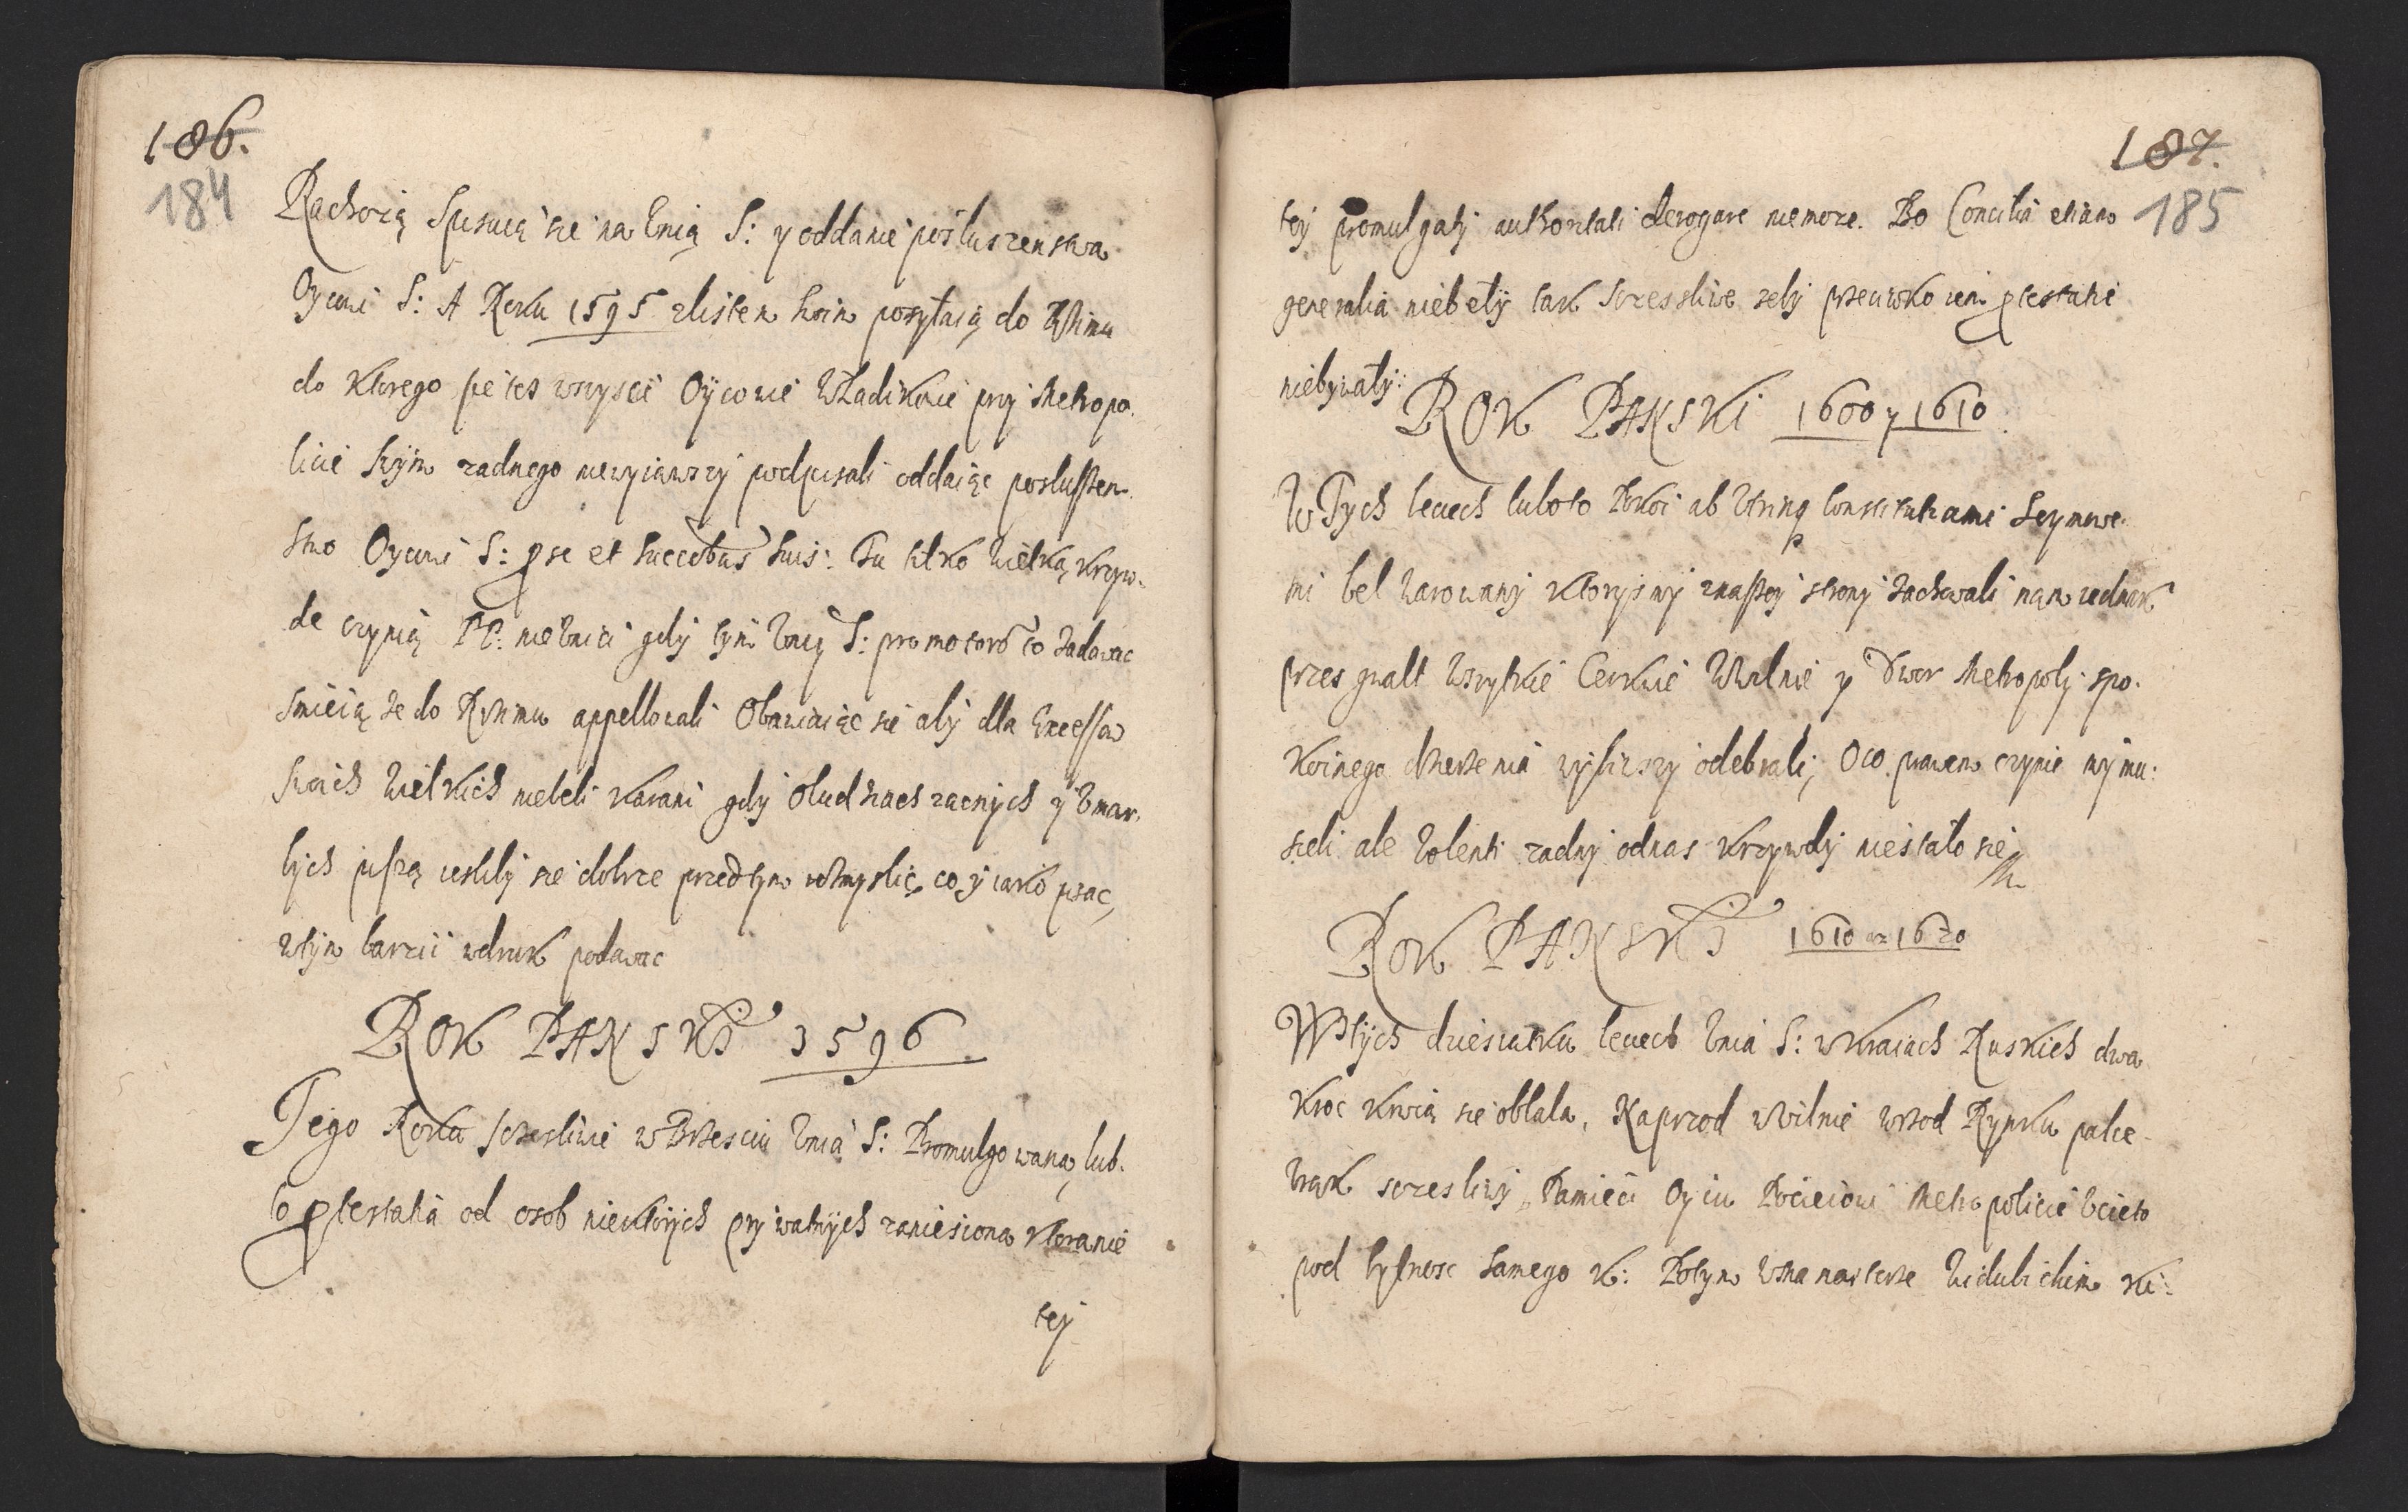 186.
184
Rachoią spisuią sie na Unią S: y oddanie posluszenstwa
Oycowi S: A Roku 1595 zlistem swim posyłaią do Rzimu
do ktorego sie tes wszyscie Oycowie Władikowie przy Metropo-
licie swym zadnego niewyiąwszy podpisali oddaiąc poslussen-
stwo Oycowi S: p se et succobus suis: Tu tilko wielką krzyw-
de czynią PP: nieUnici gdy tym Uniy S: promotorō to zadawac
smieią ze do Rzymu appellowali Obawiaiąc sie aby dla Excessow
swoich wielkich niebeli karani gdy oludziach zacnych y Umar-
łych piszą ieslily sie dobrze przed tym rozmyslic, co y iako psac,
wtym barzii wdruk podawac
ROK PANSKI 1596
Tego Roku sczesliwie w Brzesciu Unia S: Promulgowana, lub-
o ptestatia od osob niektorych prywatnych zaniesiona ktora nie
tey
187.
185
tey promulgatij authoritati derogare niemoze. Bo Concilia etiam
generalia niebeły tak sczessliwe zeby przeciwko iem ptestatie
niebywały:
ROK PANSKI 1600 y 1610
W Tych leciech luboto Pokoi ab Utrinq Constitutiami Seymowe-
mi bel warowany ktorysmy znassey strony zachowali nam iednak
przes gwalt wszytkie Cerkwie W Wilnie y Dwor Metropoly spo-
koinego dzierzenia wybiwszy odebrali, Oco prawem czynic mymu-
sieli ale Volenti zadny odnas krzywdy niestało sie
ROK PANSKI 1610 az 1620
W Tych dziesiatku leciech Unia S: w kraiach Ruskich dwa
kroc krwią sie oblala, Naprzod w Wilnie wsrod Rynku palce
wrąk sczesliwy Pamieci Oycu Pocieiowi Metropolicie Ucieto
pod bytnosc samego K: Potym w Manasterze Widubickim Ki-